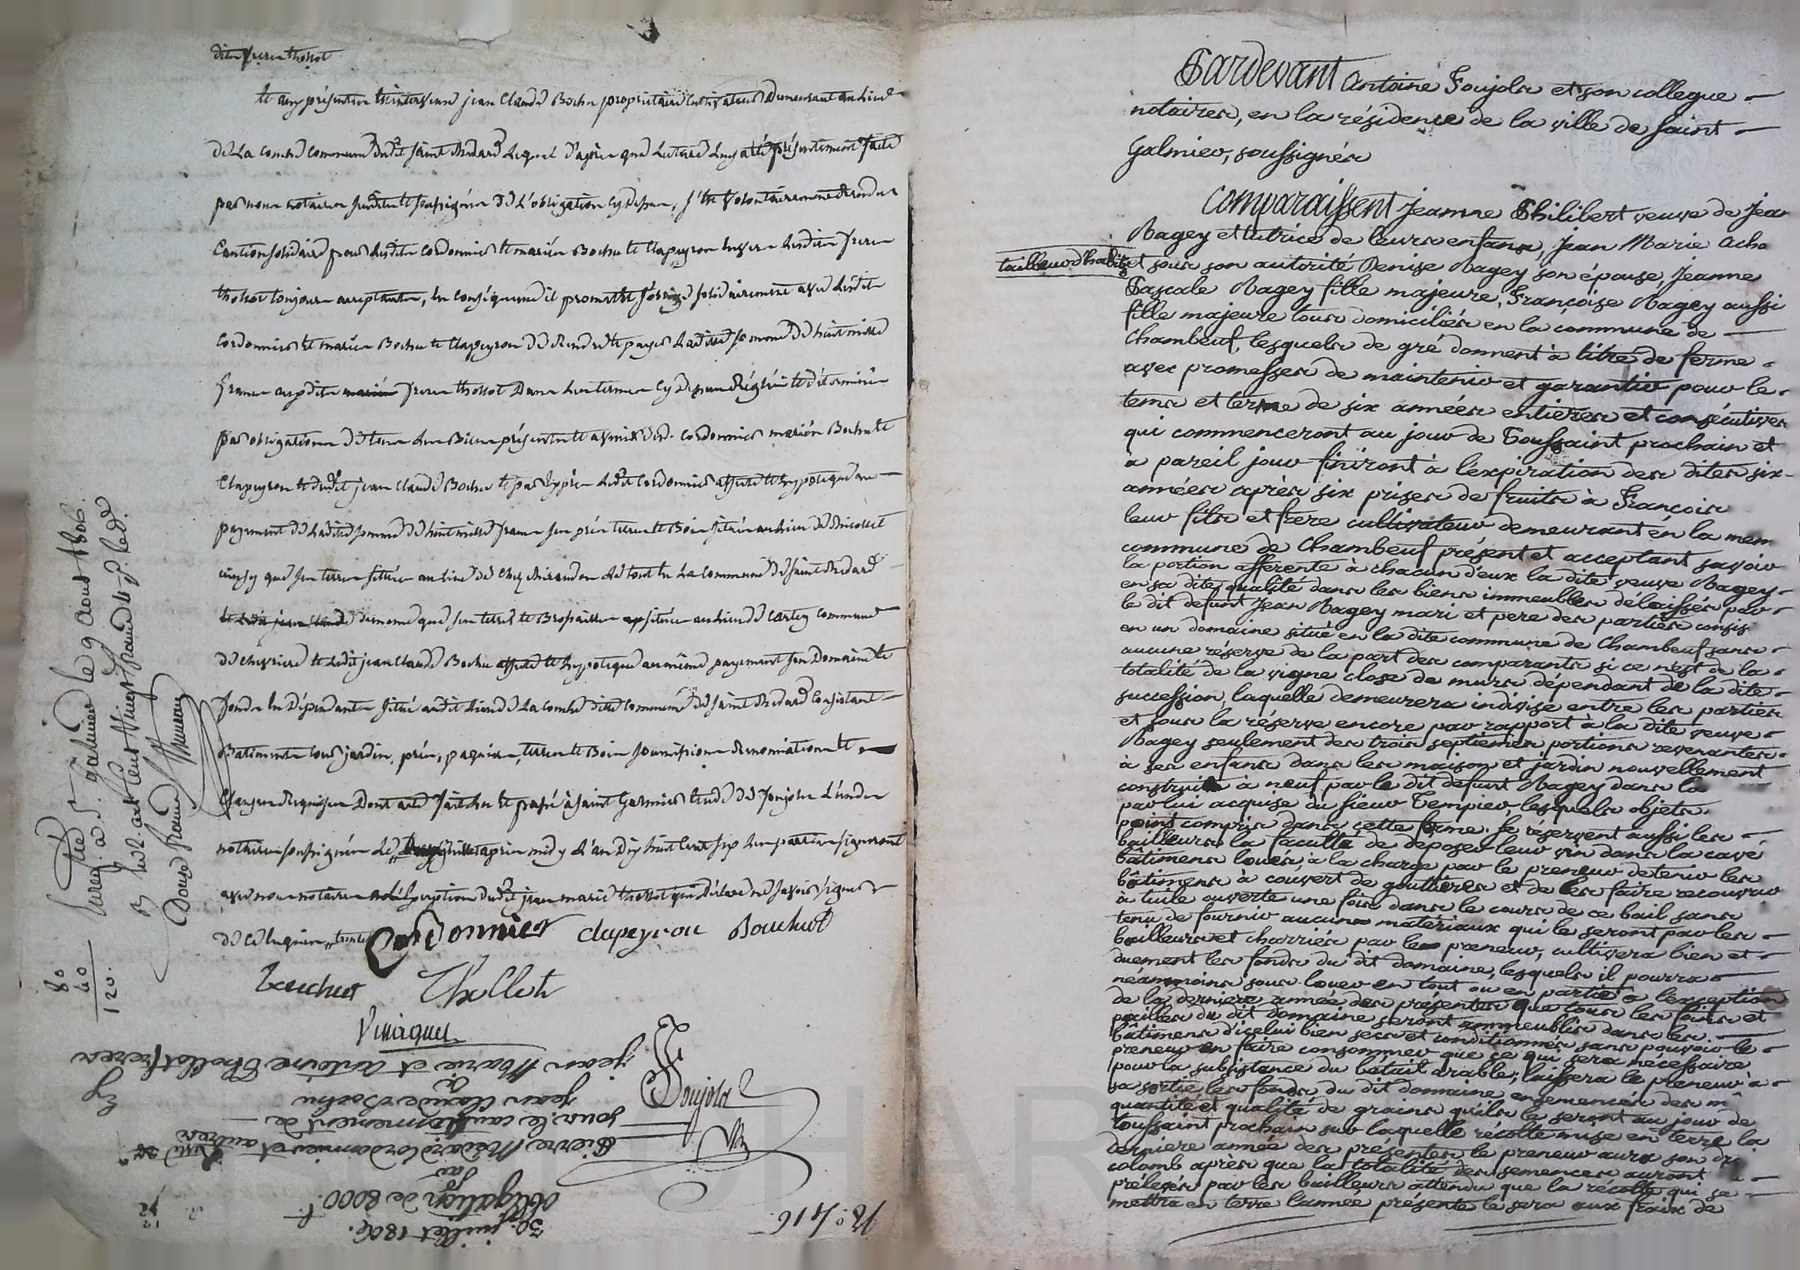 dits frères thollot
et au présent est intervenu jean Claude Bochu propriétaire cultivateur Demeurant au lieu
de La Combe commune dudit saint Médard Lequel d'après que lecture luy a été présentement faite
par nous notaires susdits et soussignés de L'obligation cy dessus, s'est volontairement rendu
Caution solidaire pour lesdits Cordonnier et mariés Bochu et Clapeyron envers lesdits frères
thollot toujours acceptants, en conséquence il promet et s'oblige solidairement avec lesdits
Cordonnier et mariés Bochu et Clapeyron de rendre et payer Ladite somme de huit mille
francs auxdits frères thollot Dans les termes cy dessus réglés et déterminés
par obligation de tous leurs Biens présents et à venir Cordonnier mariés Bochu et
Clapeyron et dudit jean Claude Bochu et par exprès ledit Cordonnier affecte et hypotèque au
payement de Ladite somme de huit mille francs ses prés terres et Bois situés au lieu de
ainsy que ses terres situées au lieu de chez le tout en La Commune de saint Médard
de même que ses terres et Brossailles situées au lieu de commune
de chevrières et ledit jean Claude Bochu affecte et hypotèque au même payement son Domaine et
fonds en Dépendants situé audit Lieu de La Combe dite Commune de saint Médard Consistant
Batiments cour jardin, prés, paquiers, terres et Bois soumissions renonciations et
Clauses requises Dont acte fait lu et passé à saint Galmier étude de Joujols L'un des
notaires soussignés Le après midy L'an Dix huit cent six Les parties signeront
avec nous notaires à L'exception dudit jean marie thollot qui a déclaré ne savoir signer
de ce enquis
Cordonnier clapeyron Bouchut
Bouchut Thollet
Viricquel
Joujols
Enreg. à St. galmier le 9 aout 1806.
Douze francs
80
40
120.
30 juillet 1806.
obligation de 8000 f.
par
Pierre Médard Cordonnier et autres
sous le cautionnement de
jean Claude Bochu
à
jean Marie et antoine Thollot freres
12.416.
Pardevant Antoine Joujols et son collegue
notaires, en la résidence de la ville de Saint
Galmier, soussignés
Comparaissent Jeanne Philibert veuve de Jean
Ragey et tutrice de leurs enfans, Jean Marie Acha
tailleur d'habits
et sous son autorité Denise Ragey son épouse, Jeanne
Pascale Ragey fille majeure, Françoise Ragey aussi
fille majeure tous domiciliés en la commune de
Chambeuf, lesquels de gré donnent à titre de ferme
avec promesses de maintenir et garantir pour le
tems et terme de six années entières et consécutives
qui commenceront au jour de Toussaint prochain et
à pareil jour finiront à l'expiration des dites six
années après six prises de fruits à François
leur fils et frère cultivateur demeurant en la mem
commune de Chambeuf présent et acceptant savoir
la portion afférente à chacun d'eux la dite veuve Ragey
en sa dite qualité dans les biens immeubles délaissés par
le dit defunt Jean Ragey mari et pere des parties consis
en un domaine situé en la dite commune de Chambeuf sans
aucune réserve de la part des comparants si ce n'est de la
totalité de la vigne close de murs dépendant de la dite
succession laquelle demeurera indivise entre les parties
et sous la réserve encore par rapport à la dite veuve
Ragey seulement des trois septiemes portions revenantes
à ses enfants dans les maison et jardin nouvellement
construits à neuf par le dit defunt Ragey dans le
par lui acquise du sieur Tempier, lesquels objets
point compris dans cette ferme. Se reservent aussi les
bailleurs la faculté de deposer leur vin dans la cave
bâtimens loués, à la charge par le preneur de tenir les
bâtimens à couvert de gouttieres et de les faire recouvrir
à tuile ouverte une fois dans le cours de ce bail sans
tenu de fournir aucuns matériaux qui le seront par les
bailleurs et charriés par le preneur, cultivera bien et
duement les fonds du dit domaine, lesquels il pourra
néammoins sous louer en tout ou en partie à l'exception
de la derniere année des présentes que tous les foins et
pailles du dit domaine seront ammeublis dans les
bâtimens d'icelui bien secs et conditionnés sans pouvoir le
preneur en faire consommer que ce qui sera nécessaire
pour la subsistance du bétail arable; laissera le preneur à
sa sortie les fonds du dit domaine ensemencés des m
quantité et qualité de grains qu'ils le seront au jour de
toussaint prochain sur laquelle récolte mise en terre la
derniere année des présentes le preneur aura son dr
colomb après que la totalité des semences auront
prélevés par les bailleurs attendu que la récolte qui se
mettra en terre l'année présente le sera aux fraix de